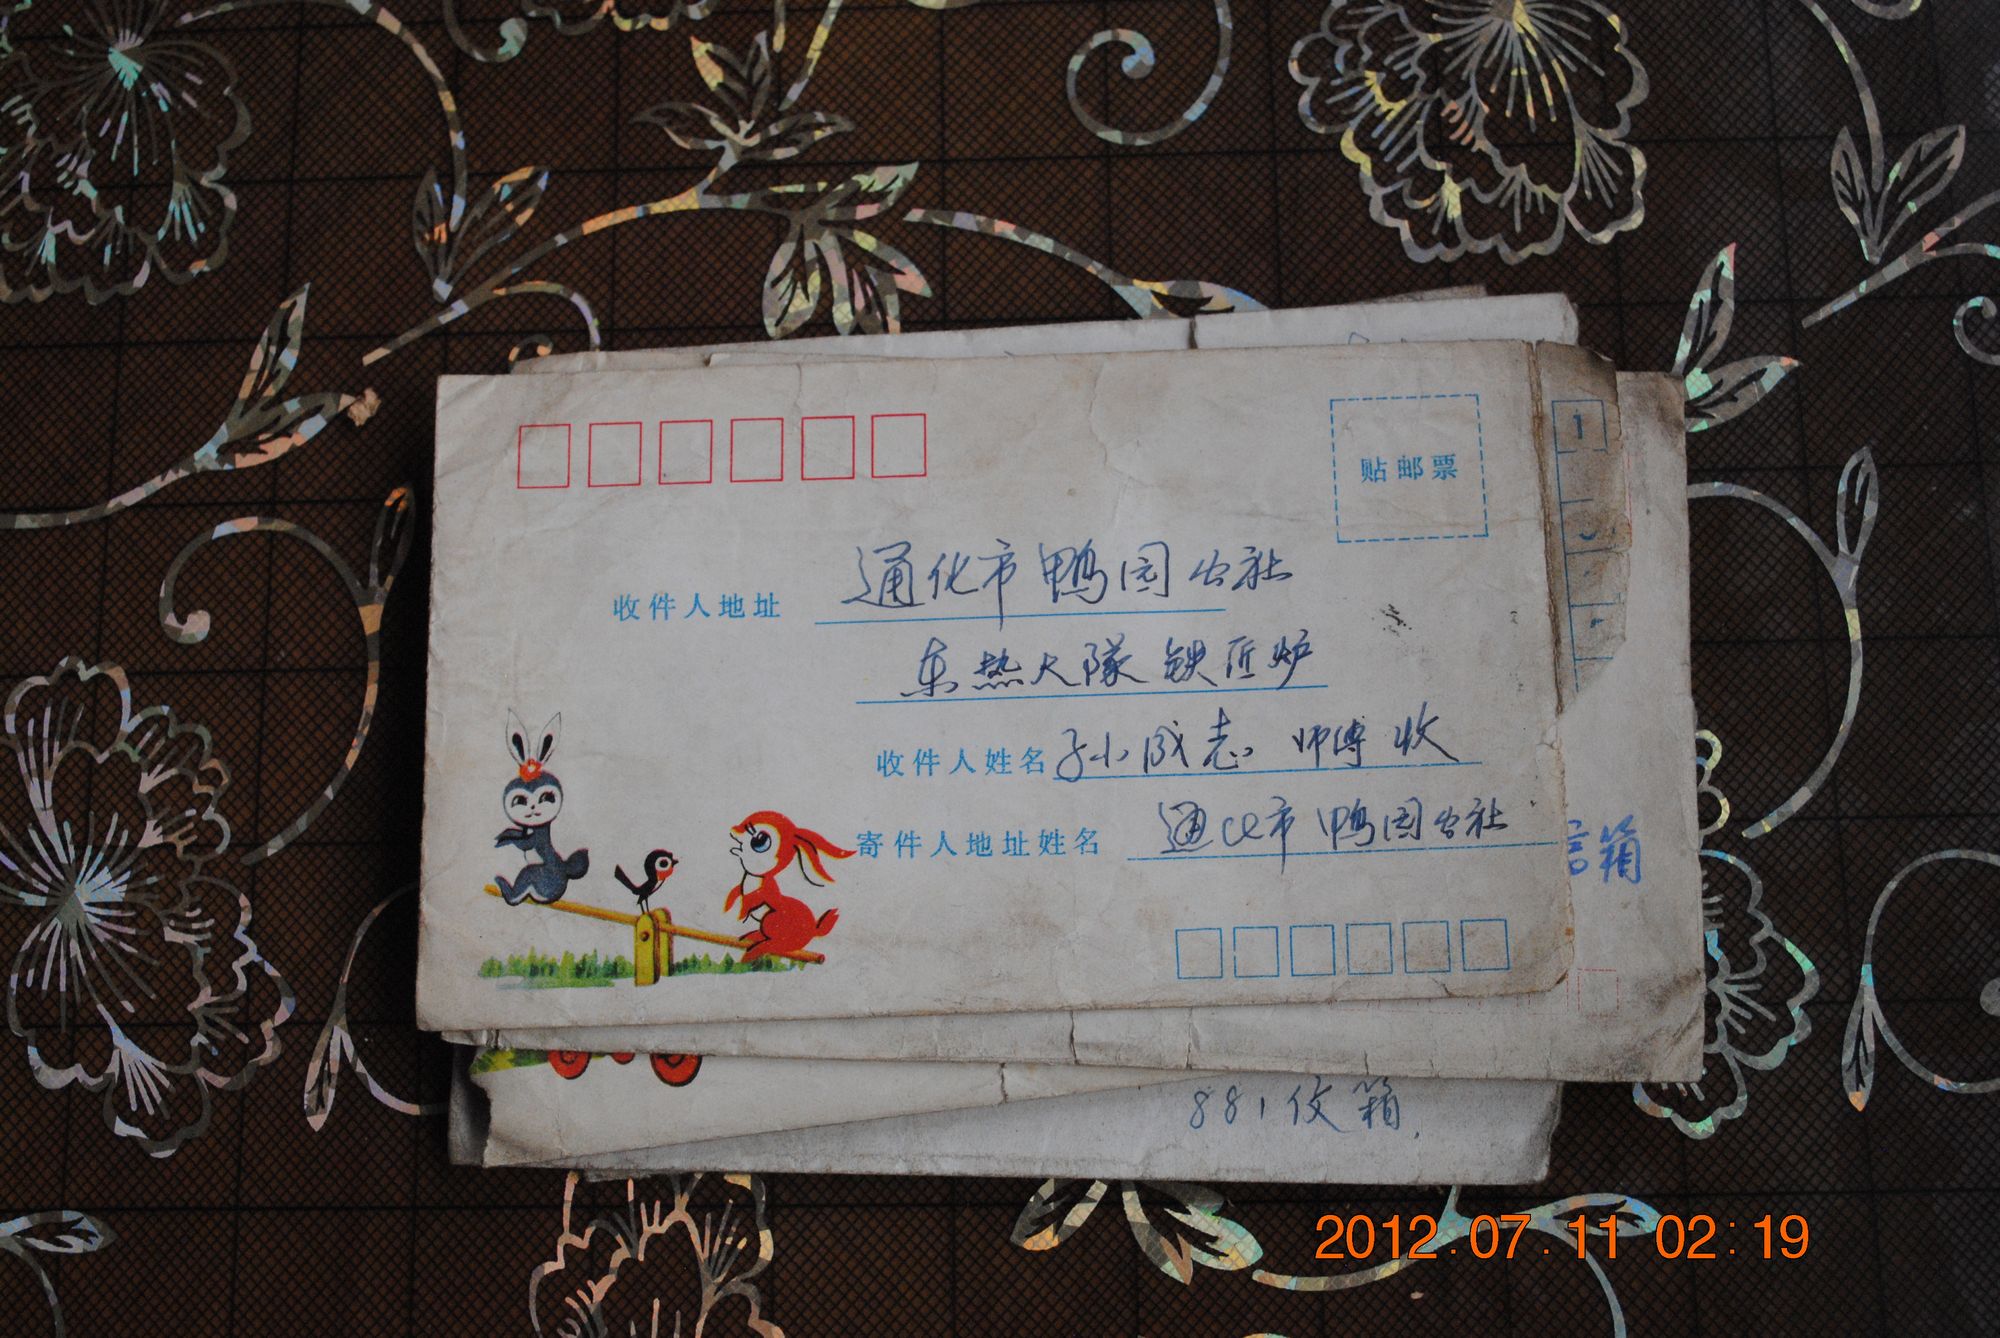 贴邮票
收件人地址 通化市鸭园公社
东热大队铁匠炉
收件人姓名 孙成志 师傅 收
寄件人地址姓名 通化市鸭园公社
信箱
881信箱.
2012.07.11 02:19